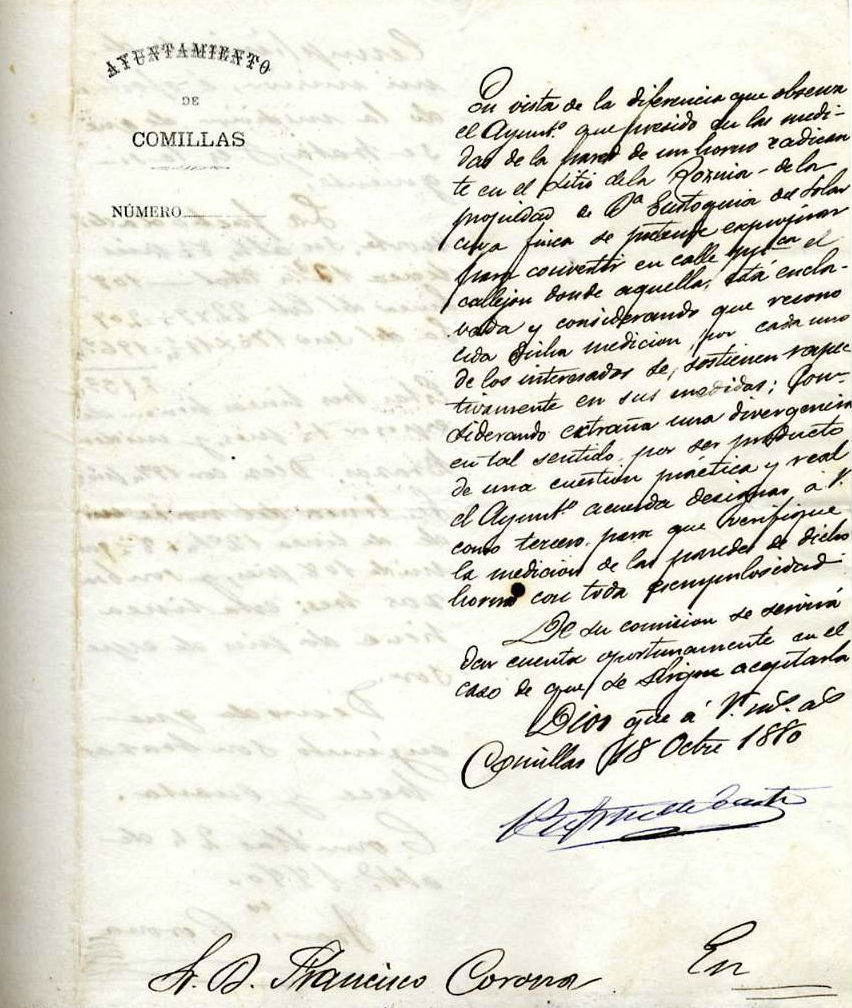 AYUNTAMIENTO
DE
COMILLAS
NÚMERO
En vista de la diferencia que observa
el Ayunt.º que presido en las medi-
das de la pared de un horno radican
te en el sitio de la - de la
propiedad de Dª Eustoquia del Solar
cuya finca se pretende expropiar
para convertir en calle el
callejon donde aquella, está encla-
vada y considerando que recono
cida dicha medicion, por cada uno
de los interesados se, sostienen respec
tivamente en sus medidas; Con-
siderando estraña una divergencia
en tal sentido, por ser producto
de una cuestión práctica y real
el Ayunt.º acuerda designar á V.
como tercero, para que verifique
la medición de las paredes de dicho
horno con toda escrupulosidad.
De su comision se servirá
dar cuenta oportunamente en el
caso de que se digne aceptarla
Dios gue á V. ms. as
Comillas 18 Octre 1880
Sr. D. Francisco Corona
En